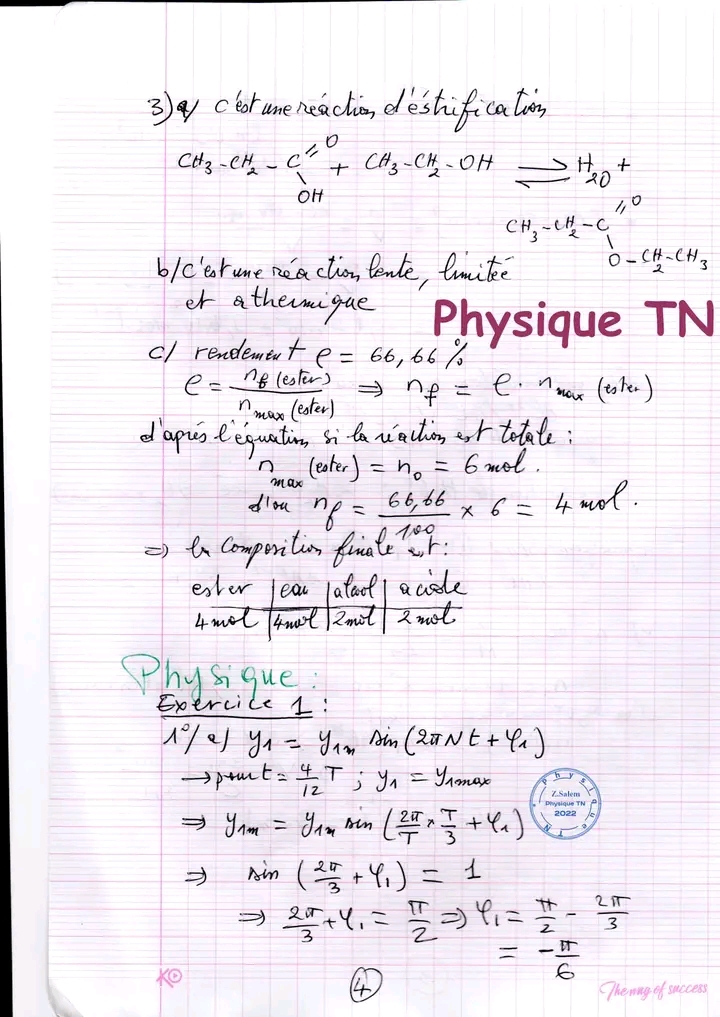 3) a/ c'est une réaction d'éstrification
CH3-CH2-C=O OH + CH3-CH2-OH ⇌ H2O +
CH3-CH2-C=O O-CH2-CH3
b/ c'est une réaction lente, limitée
et athermique
Physique TN
c/ rendement ρ = 66,66 %
ρ = nf (ester) / nmax (ester) ⇒ nf = ρ · nmax (ester)
d'aprés l'équation si la réaction est totale :
nmax (ester) = n0 = 6 mol.
d'ou nf = 66,66/100 × 6 = 4 mol.
⇒ la composition finale est :
ester | eau | alcool | acide
4 mol | 4 mol | 2 mol | 2 mol
Physique :
Exercice 1 :
1°/ a/ y1 = y1m sin(2πNt + φ1)
→ pour t = 4/12 T ; y1 = y1max
Physique TN
Z.Salem
Physique TN
2022
⇒ y1m = y1m sin (2π/T × T/3 + φ1)
⇒ sin (2π/3 + φ1) = 1
⇒ 2π/3 + φ1 = π/2 ⇒ φ1 = π/2 - 2π/3
= -π/6
4
The way of success